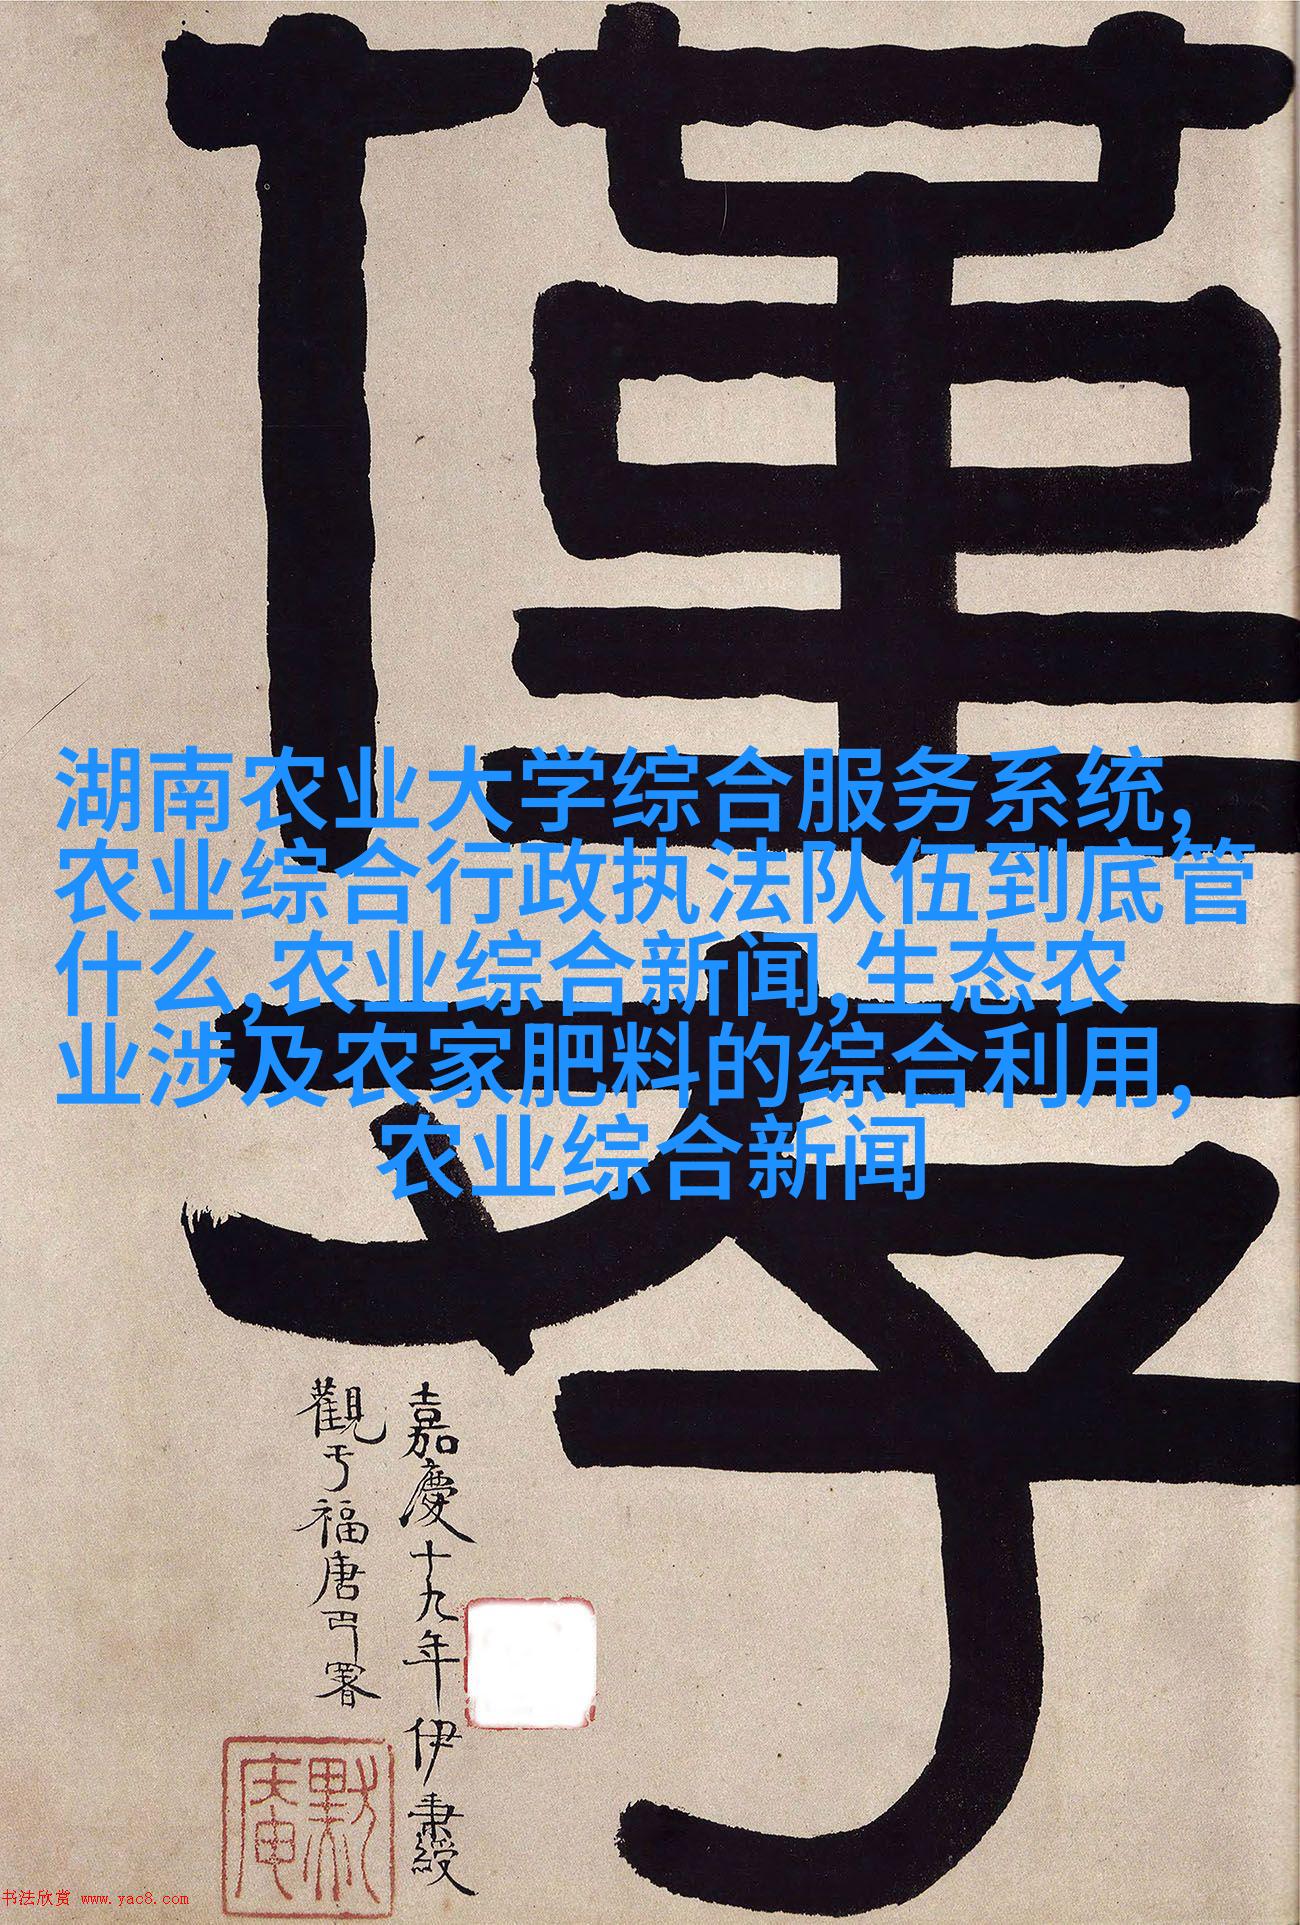 湖南农业大学综合服务系统,
农业综合行政执法队伍到底管
什么,农业综合新闻,生态农
业涉及农家肥料的综合利用,
农业综合新闻
嘉慶十九年伊秉綬
觀于福唐
署
默庵
书法欣赏 www.yac8.com